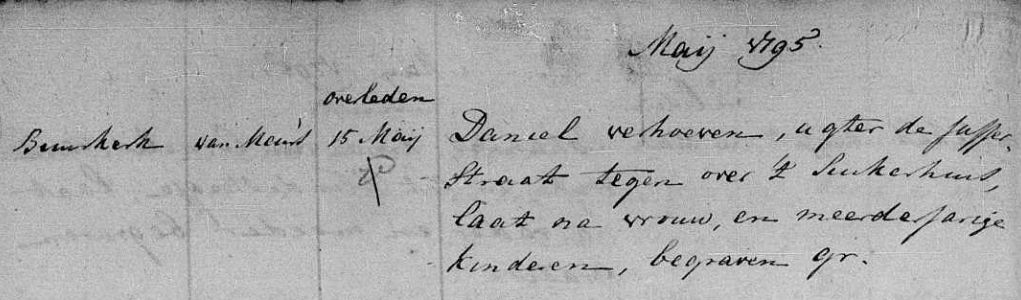 Maij 1795.
overleden
Buurkerk van Meurs 15 Maij Daniel verhoeven, agter de Juffer-
Straat tegen over 't Suikerhuis,
laat na vrouw, en meerderjarige
kinderen, begraven gr.